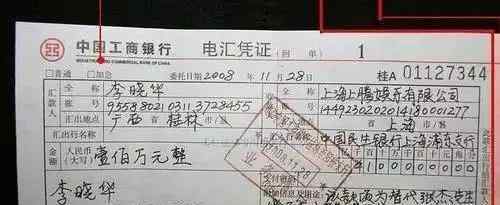 中国工商银行 电汇凭证 （回单） 1
INDUSTRIAL AND COMMERCIAL BANK OF CHINA
□普通 □加急 委托日期 2008 年 11 月 28 日 桂A 01127344
汇款人 全称 李晓华 全称 上海上腾娱乐有限公司
账号 9558802103113728455 账号 1449230420140001277
汇出地点 广西 省 桂林 市/县 上海 市/县
汇出行名称 中国民生银行上海浦东支行
金额 人民币（大写） 壹佰万元整 千 百 十 万 千 百 十 元 角 分
¥ 1 0 0 0 0 0 0 0 0
支付密码
李晓华 附加信息及用途：
此款项为替代张杰先生